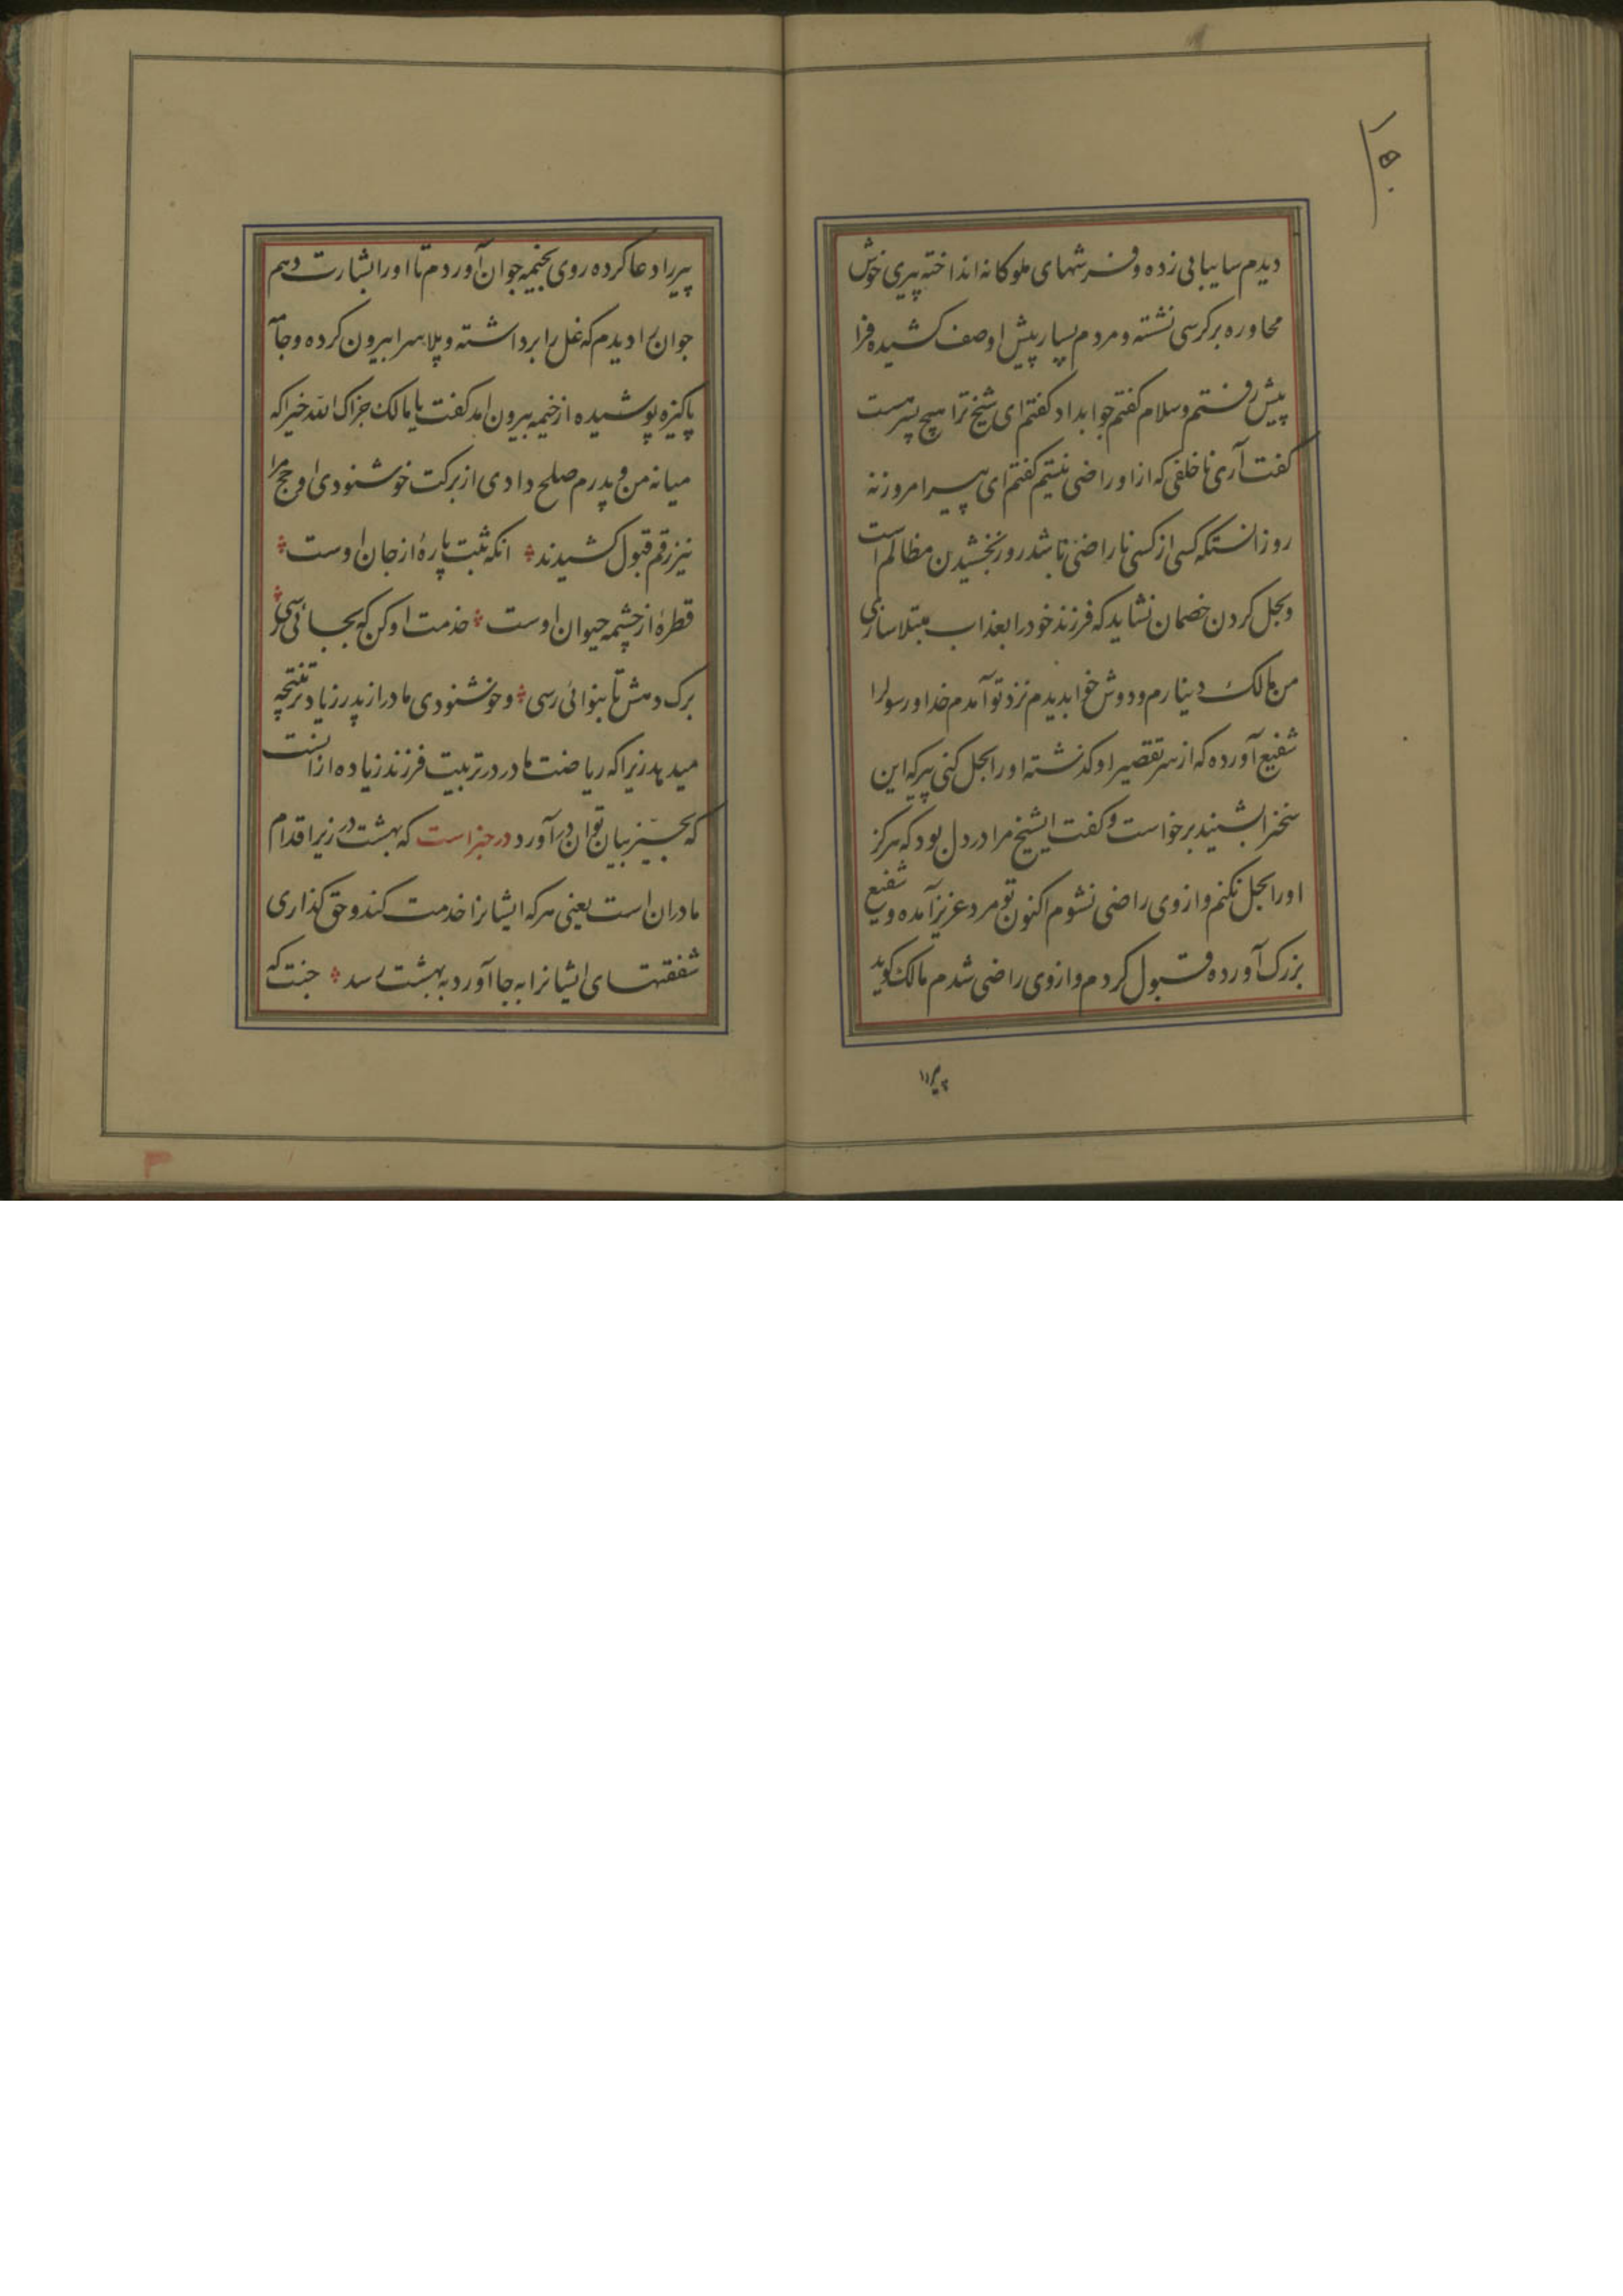 ۱۵۰
دیدم سایبانی زده و فرشهای ملوکانه انداخته پیری خوش
محاوره بر کرسی نشسته و مردم بسیار پیش او صف کشیده فرا
پیش رفتم و سلام کفتم جوابداد کفتم ای شیخ ترا هیچ پسر هست
کفت آری ناخلفی که از او راضی نیستم کفتم ای پیر امروز نه
روز انستکه کسی از کسی ناراضی باشد روز بخشیدن مظالم است
و بحل کردن خصمان نشاید که فرزند خود را بعذاب مبتلا سازی
من مالک دینارم و دوش خوابدیدم نزد تو آمدم خدا و رسولرا
شفیع آورده که از سر تقصیر او کذشته او را بحل کنی پیر که این
سخنرا بشنید برخواست و کفت ایشیخ مرا در دل بود که هرکز
او را بحل نکنم و از وی راضی نشوم اکنون تو مرد عزیز آمده و شفیع
بزرک آورده قبول کردم و از وی راضی شدم مالک کوید
پیررا
پیر را دعا کرده روی بخیمه جوان آوردم تا او را بشارت دهم
جوان را دیدم که غل را برداشته و پلاسرا بیرون کرده و جامه
پاکیزه پوشیده از خیمه بیرون امد کفت یا مالک جزاک الله خیرا که
میانه من و پدرم صلح دادی از برکت خوشنودی او حج مرا
نیز رقم قبول کشیدند انکه تنت پارهٔ از جان اوست
قطرهٔ از چشمه حیوان اوست خدمت او کن که بجائی رسی
برک دهش تا بنوائی رسی و خوشنودی مادر از پدر زیادتر نتیجه
میدهد زیرا که ریاضت مادر در تربیت فرزند زیاده از انست
که بحیز بیان توان در آورد در خبر است که بهشت در زیر اقدام
مادران است یعنی هر که ایشانرا خدمت کند و حق کذاری
شفقتهای ایشانرا به جا آورد به بهشت رسد جنت که